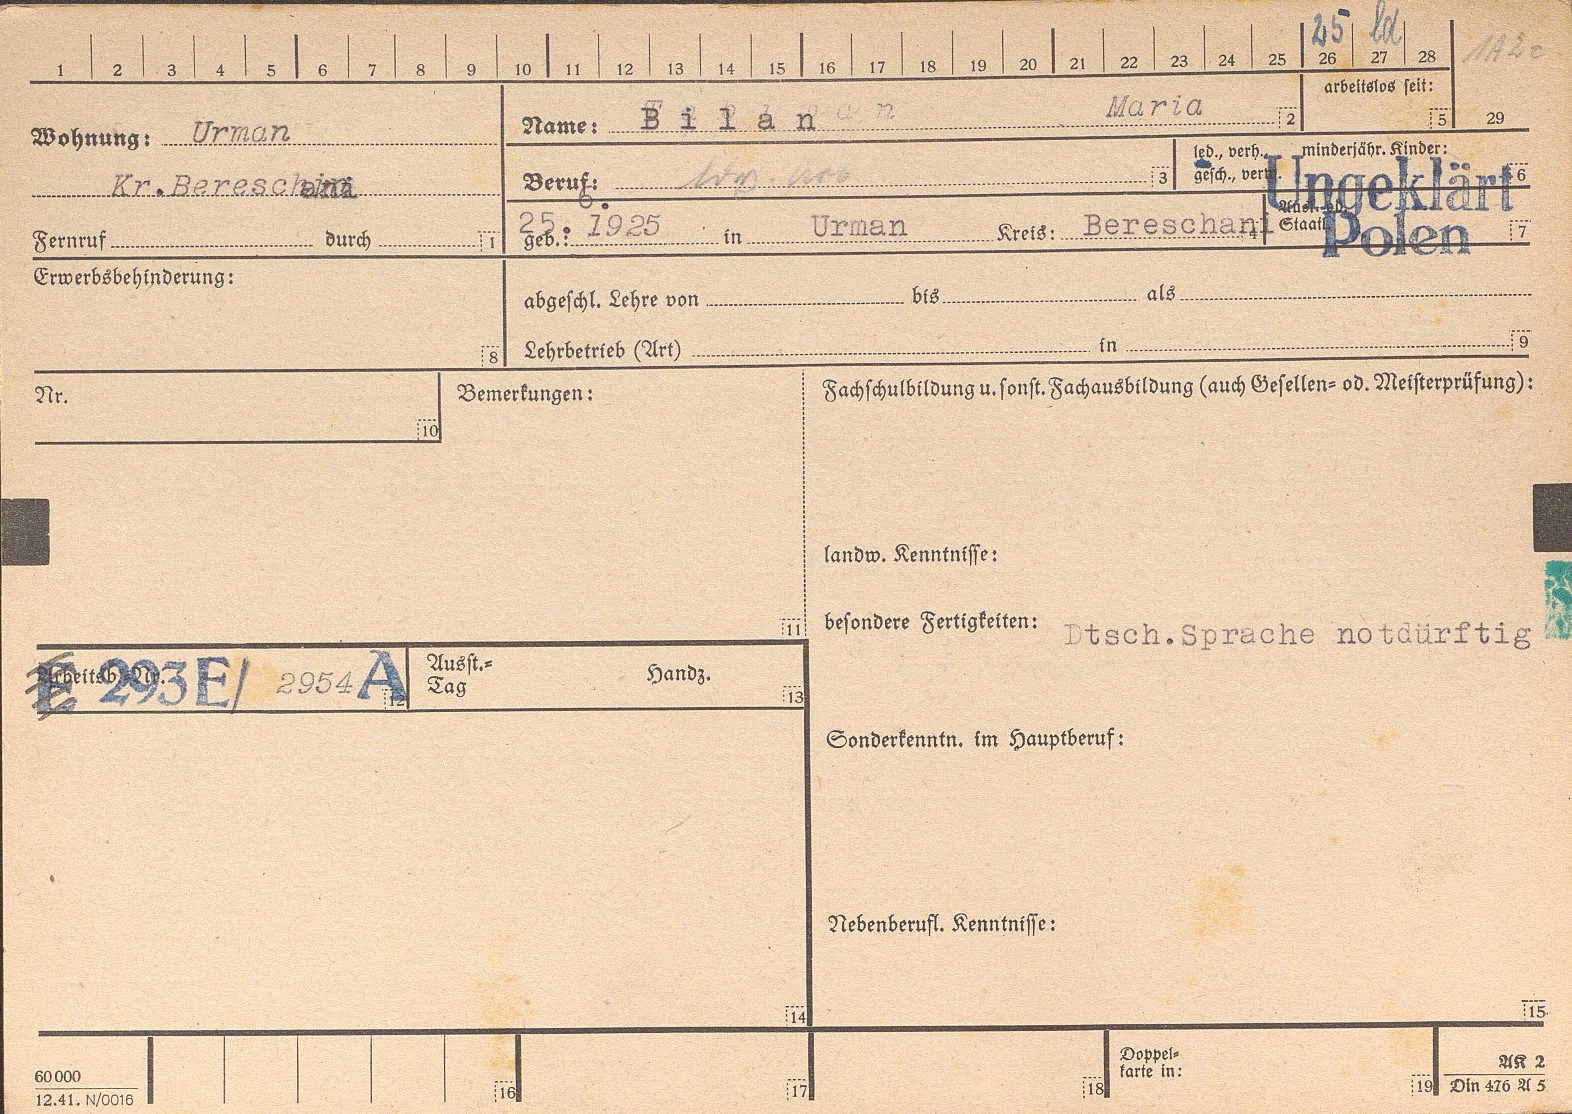 45 ld
1A2c
1 2 3 4 5 6 7 8 9 10 11 12 13 14 15 16 17 18 19 20 21 22 23 24 25 26 27 28
arbeitslos seit:
5 29
Wohnung: Urman
Kr.Bereschani
Fernruf durch 1
Name: Bilan Maria 2
Beruf: 3
led., verh., minderjähr. Kinder:
gesch., verw. 6
Ungeklärt
Polen
geb.: 25.6.1925 in Urman Kreis: Bereschani 4
Ausl. od.
Staatl. 7
Erwerbsbehinderung:
8
abgeschl. Lehre von bis als
Lehrbetrieb (Art) in 9
Nr.
10
Bemerkungen:
11
Fachschulbildung u. sonst. Fachausbildung (auch Gesellen= od. Meisterprüfung):
landw. Kenntnisse:
besondere Fertigkeiten: Dtsch.Sprache notdürftig
Arbeitsb.-Nr.
E 293E/ 2954 A 12
Ausst.=
Tag Handz. 13
Sonderkenntn. im Hauptberuf:
Nebenberufl. Kenntnisse:
14 15
60 000
12.41. N/0016
16 17 18
Doppel=
karte in: 19
AK 2
Din 476 A 5